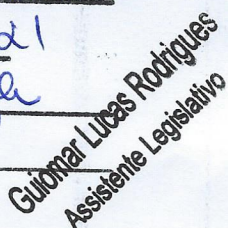 Guiomar Lucas Rodrigues
Assistente Legislativo